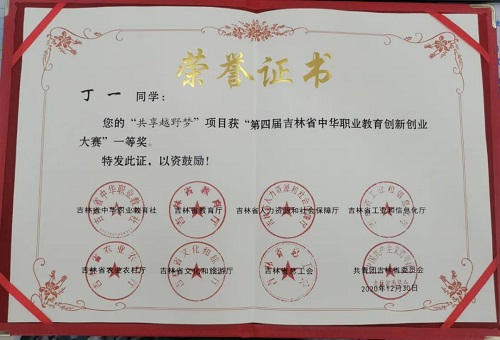 荣誉证书
丁一 同学：
您的“共享越野梦”项目获“第四届吉林省中华职业教育创新创业
大赛”一等奖。
特发此证，以资鼓励！
吉林省中华职业教育社 吉林省教育厅 吉林省人力资源和社会保障厅 吉林省工业和信息化厅
吉林省农业农村厅 吉林省文化和旅游厅 吉林省总工会 共青团吉林省委员会
2020年12月30日